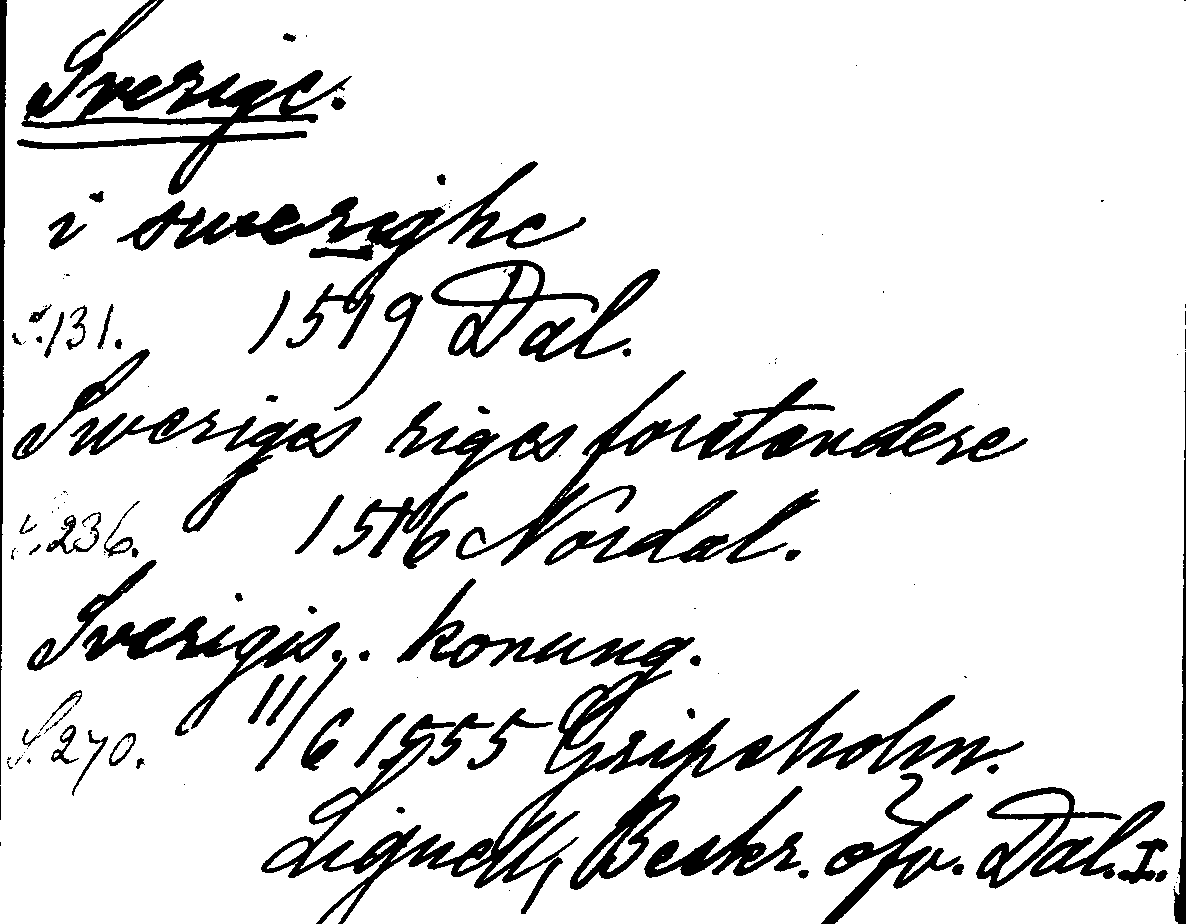 Sverige.
i swerighe
S.131. 1519 Dal.
Sweriges riges forstandere
S.236. 1516 Nordal.
Sverigis.. konung.
S.270. 11/6 1555 Gripsholm.
Lignell, Beskr. öfv. Dal. I.